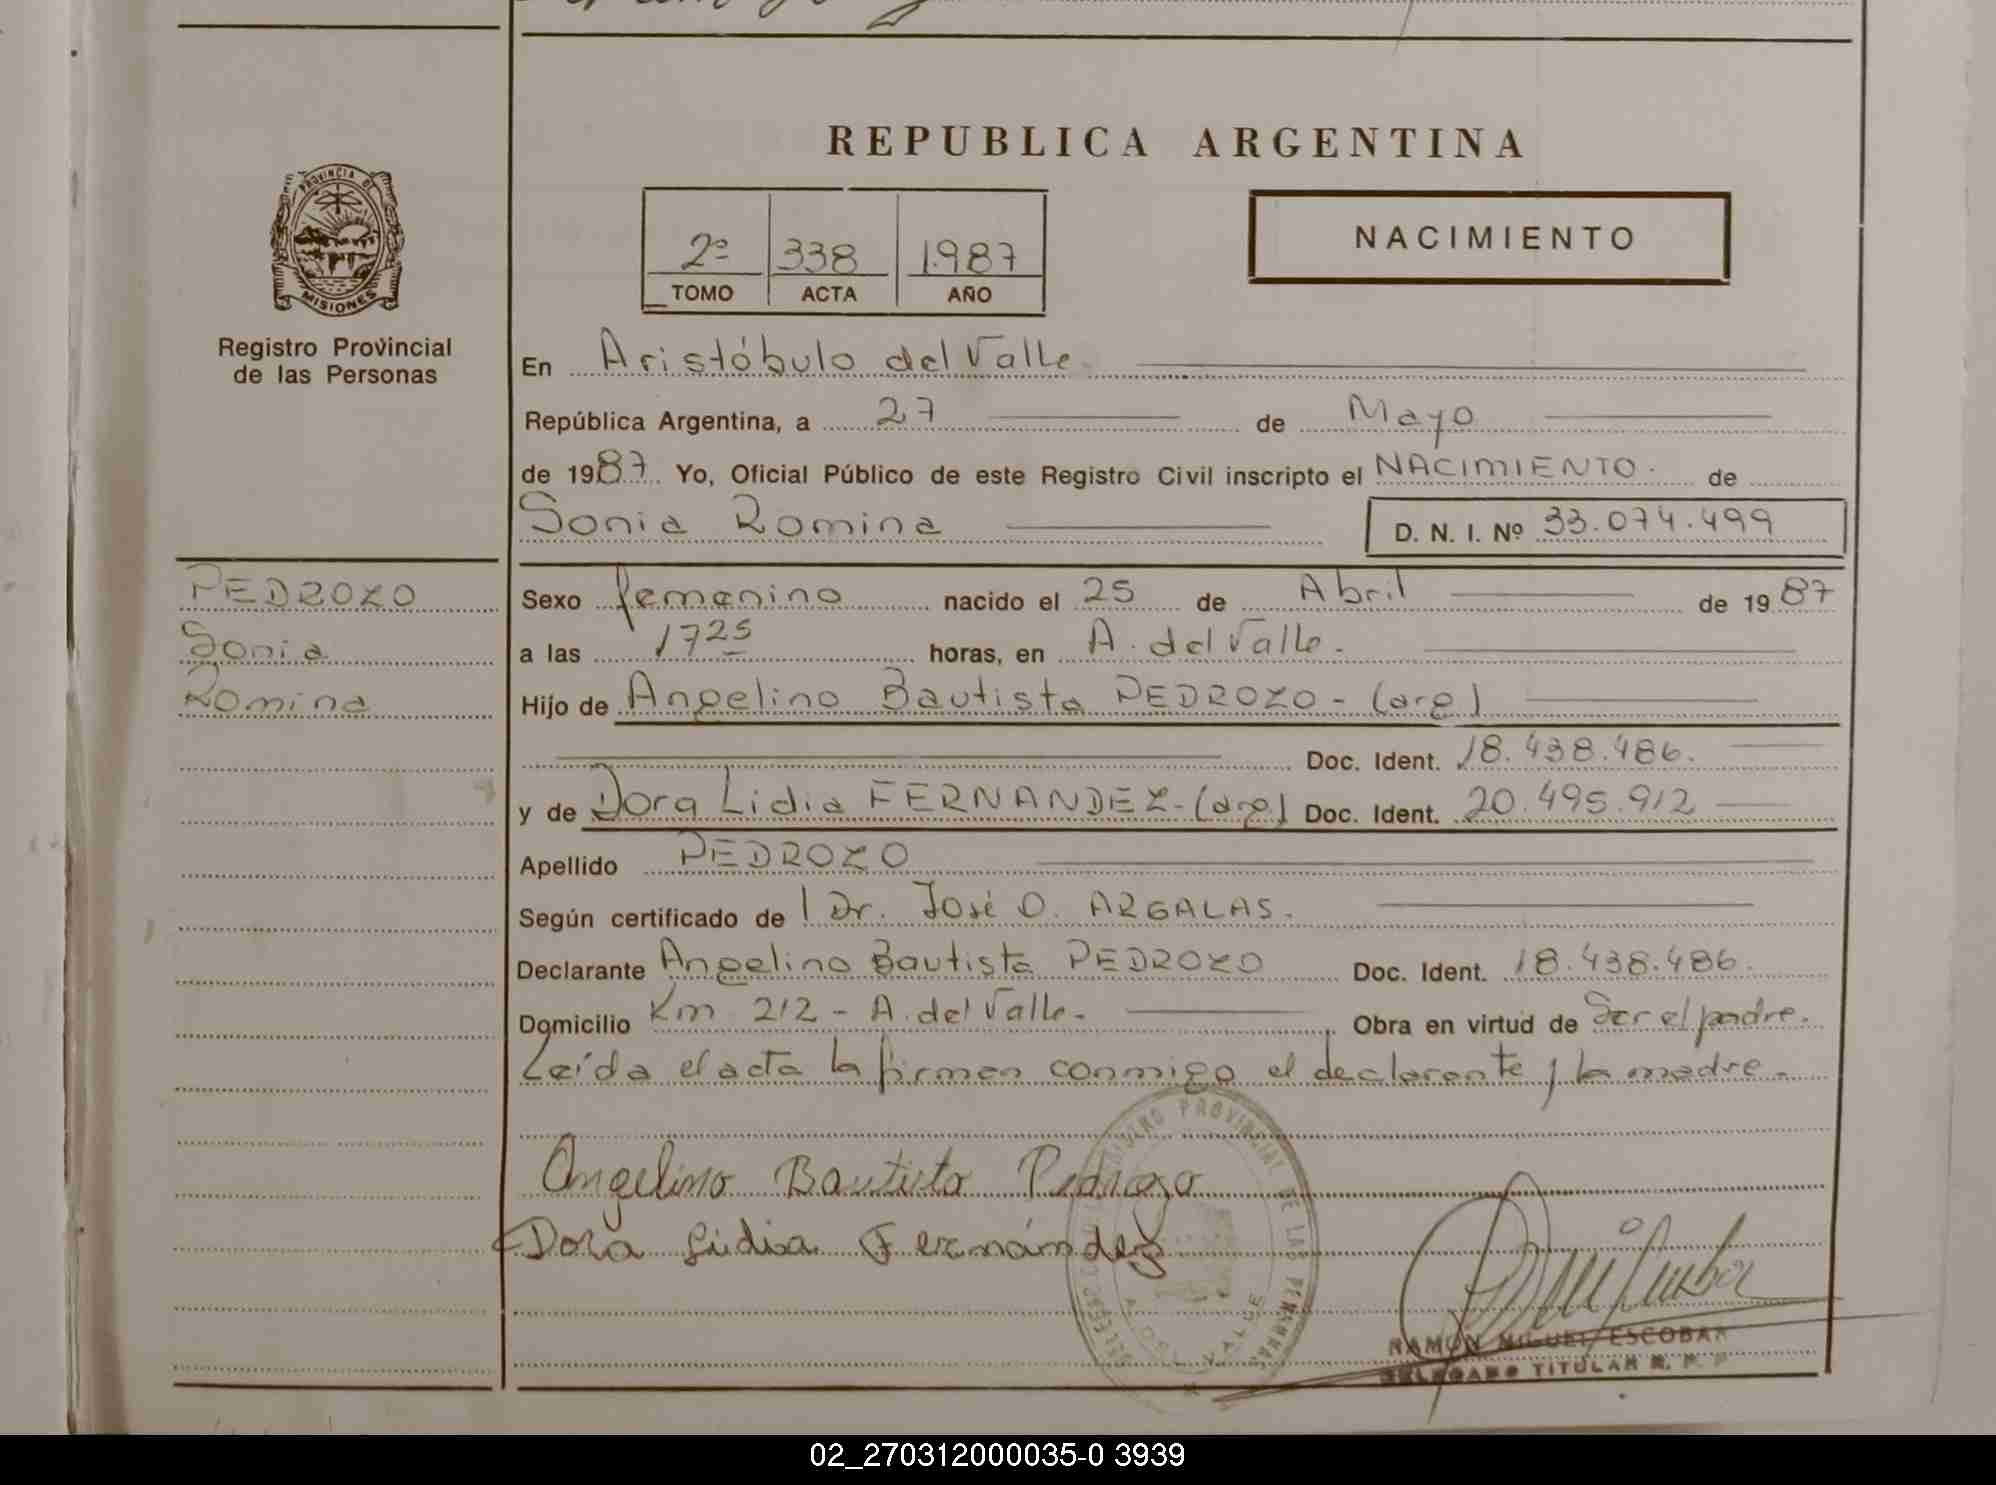 REPUBLICA ARGENTINA
PROVINCIA DE
MISIONES
Registro Provincial
de las Personas
2º 338 1987
TOMO ACTA AÑO
NACIMIENTO
En Aristóbulo del Valle.
República Argentina, a 27 de Mayo
de 1987. Yo, Oficial Público de este Registro Civil inscripto el NACIMIENTO. de
Sonia Romina D. N. I. Nº 33.074.499
PEDROZO
Sonia
Romina
Sexo femenino nacido el 25 de Abril de 1987
a las 1725 horas, en A. del Valle.
Hijo de Angelino Bautista PEDROZO - (arg)
Doc. Ident. 18.438.486.
y de Dora Lidia FERNANDEZ - (arg) Doc. Ident. 20.495.912
Apellido PEDROZO
Según certificado de l Dr. José O. ARGALAS.
Declarante Angelino Bautista PEDROZO Doc. Ident. 18.438.486.
Domicilio Km 212 - A. del Valle. Obra en virtud de Ser el padre.
Leída el acta la firman conmigo el declarante y la madre.
Angelino Bautista Pedrozo
Dora Lidia Fernández
PROVINCIAL DE LAS PERSONAS
A. DEL VALLE
RAMON MIGUEL ESCOBAR
DELEGADO TITULAR R. P. P
02_270312000035-0 3939